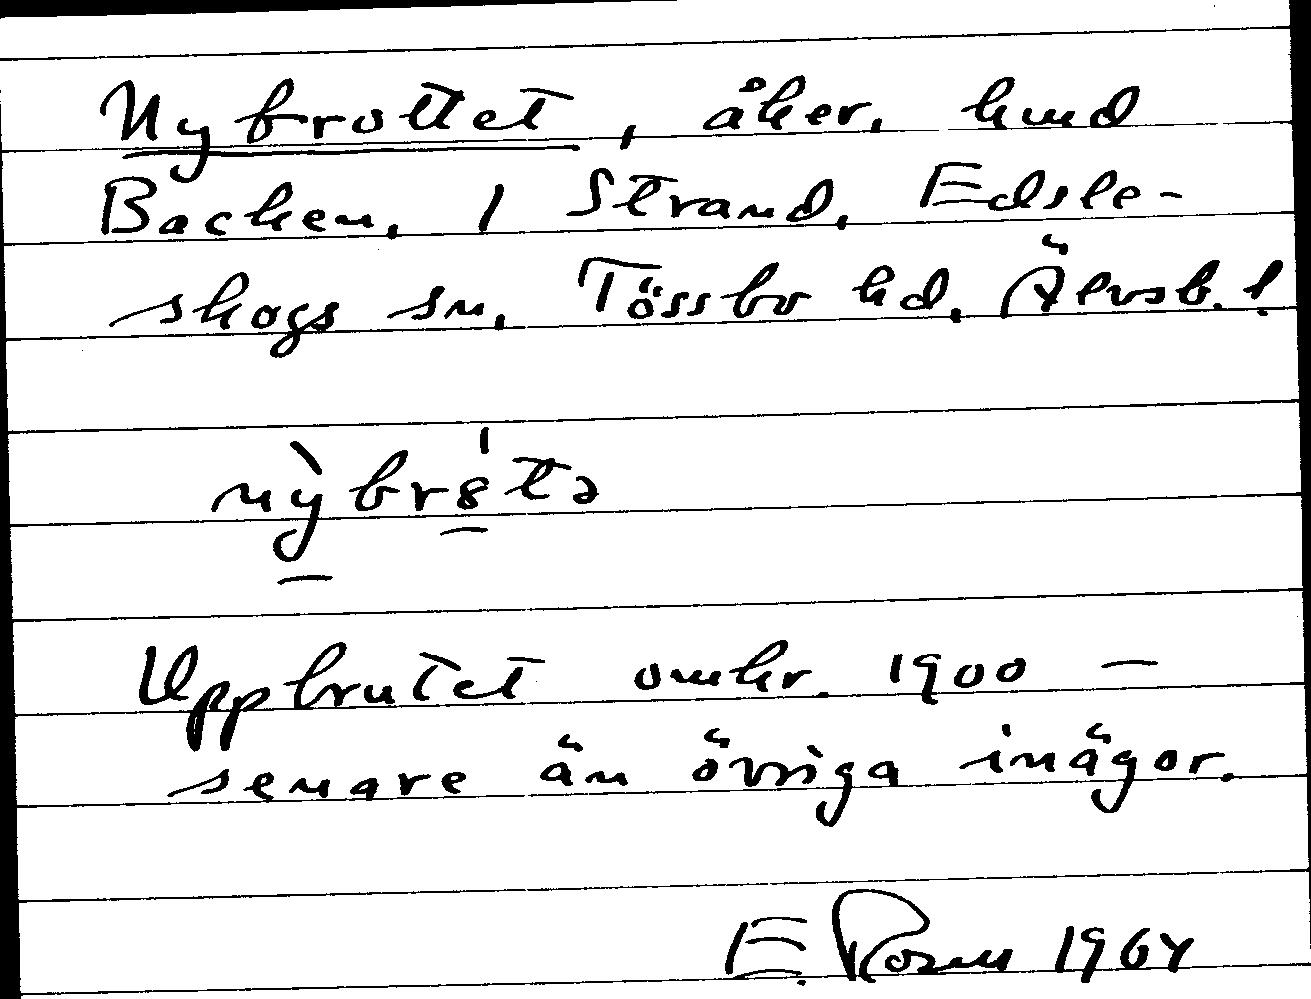 Nybrottet, åker, hmd
Backen, 1 Strand, Edsle-
skogs sn, Tössbo hd, Älvsb. l
nỳbr8́tə
Uppbrutet omkr. 1900 –
senare än övriga inägor.
E. Rosen 1964